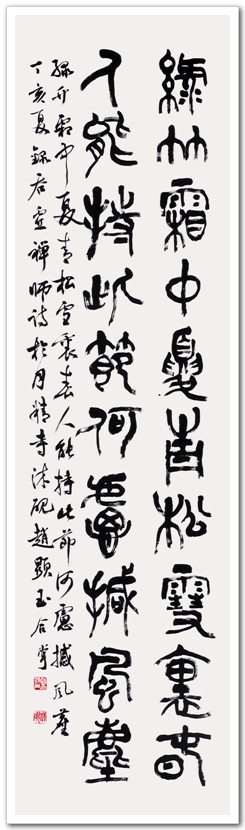 綠竹霜中夏青松雪裏春
人能持此節何慮撼風塵
綠竹霜中夏青松雪裏春人能持此節何慮撼風塵
丁亥夏錄禪師詩於月精寺硯趙顯玉合掌